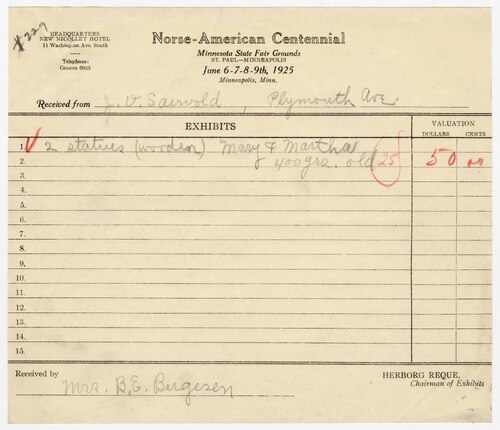 #229
HEADQUARTERS
NEW NICOLLET HOTEL
11 Washington Ave. South
Telephone:
Geneva 6955
Norse-American Centennial
Minnesota State Fair Grounds
ST. PAUL—MINNEAPOLIS
June 6-7-8-9th, 1925
Minneapolis, Minn.
Received from J. V. Saervold, Plymouth Ave.
EXHIBITS
VALUATION
DOLLARS CENTS
1. 2 statues (wooden) Mary & Martha 50 00
2. 400 yrs. old 25
3.
4.
5.
6.
7.
8.
9.
10.
11.
12.
13.
14.
15.
Received by Mrs. B. E. Bergesen
HERBORG REQUE,
Chairman of Exhibits